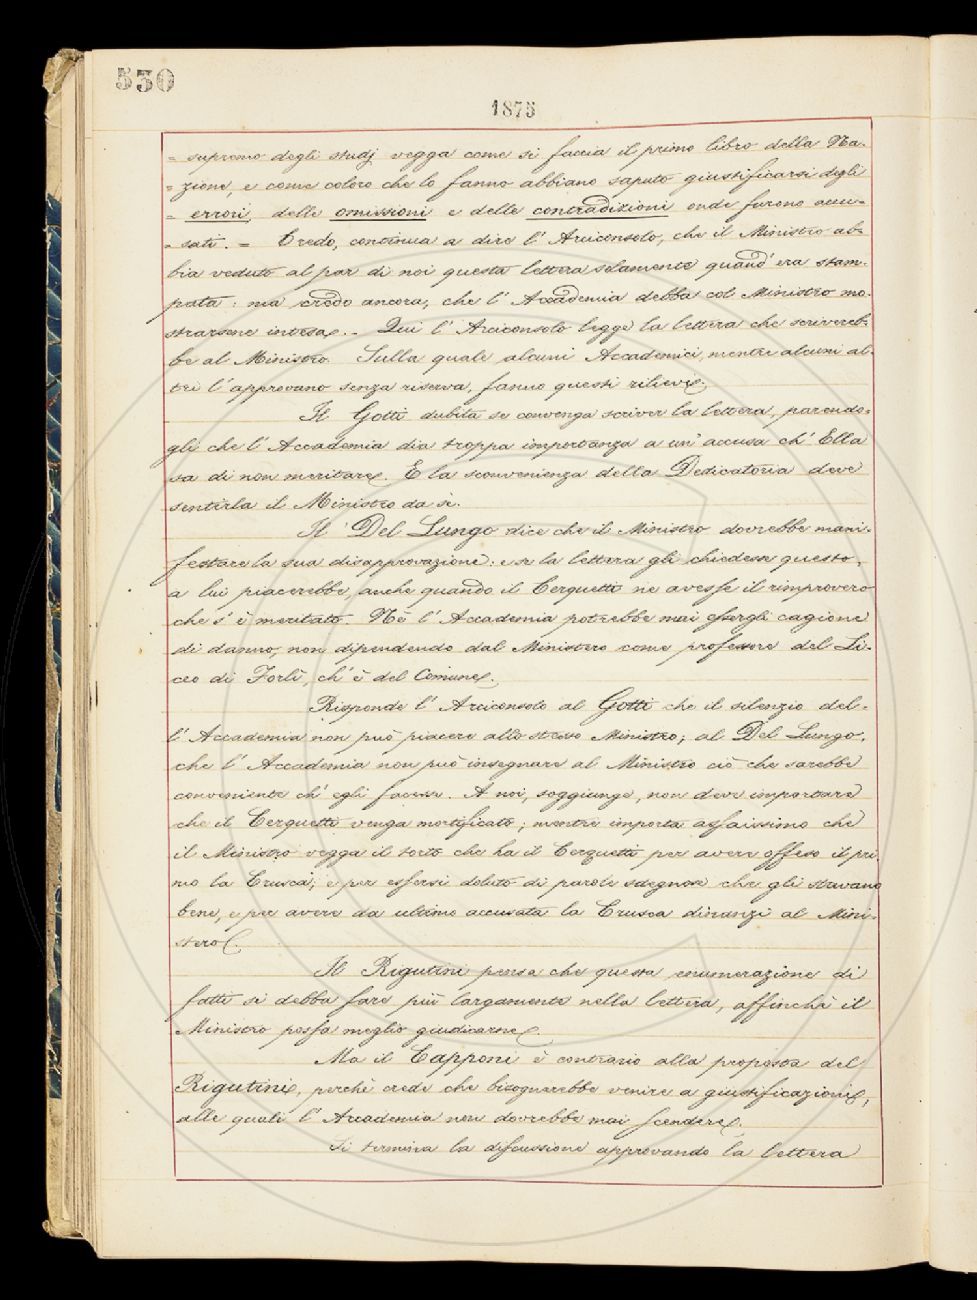 530
1875
= supremo degli studj vegga come si faccia il primo libro della Na=
= zione, e come coloro che lo fanno abbiano saputo giustificarsi degli
= errori, delle omissioni e delle contradizioni onde furono accu=
= sati. = Credo, continua a dire l'Arciconsolo, che il Ministro ab=
bia veduto al par di noi questa lettera solamente quand'era stam=
pata: ma credo ancora, che l'Accademia debba col Ministro mo=
strarsene intesa. - Qui l'Arciconsolo legge la lettera che scrivereb=
be al Ministro. Sulla quale alcuni Accademici, mentre alcuni al=
tri l'approvano senza riserva, fanno questi rilievi.
Il Gotti dubita se convenga scriver la lettera, parendo=
gli che l'Accademia dia troppa importanza a un'accusa ch'Ella
sa di non meritare. E la sconvenienza della Dedicatoria deve
sentirla il Ministro da sè.
Il Del Lungo dice che il Ministro dovrebbe mani=
festare la sua disapprovazione: e se la lettera gli chiedesse questo,
a lui piacerebbe, anche quando il Cerquetti ne avesse il rimprovero
che s'è meritato. Nè l'Accademia potrebbe mai essergli cagione
di danno, non dipendendo dal Ministero come professore del Li=
ceo di Forlì, ch'è del Comune.
Risponde l'Arciconsolo al Gotti che il silenzio del=
l'Accademia non può piacere allo stesso Ministro; al Del Lungo,
che l'Accademia non può insegnare al Ministro ciò che sarebbe
conveniente ch'egli facesse. A noi, soggiunge, non deve importare
che il Cerquetti venga mortificato; mentre importa assaissimo che
il Ministro vegga il torto che ha il Cerquetti per avere offeso il pri
mo la Crusca, e per essersi doluto di parole sdegnose che gli stavano
bene, e per avere da ultimo accusata la Crusca dinanzi al Mini=
stero.
Il Rigutini pensa che questa enumerazione di
fatti si debba fare più largamente nella lettera, affinchè il
Ministro possa meglio giudicarne.
Ma il Capponi è contrario alla proposta del
Rigutini, perchè crede che bisognerebbe venire a giustificazioni,
alle quali l'Accademia non dovrebbe mai scendere.
Si termina la discussione approvando la lettera